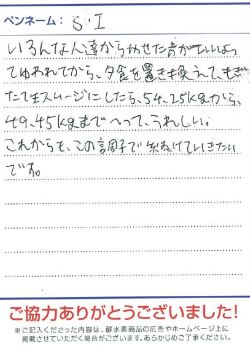 ペンネーム： S・I
いろんな人達からやせた方がいいよっ
てゆわれてから、夕食を置き換えて、もぎ
たて生スムージーにしたら、54.25kgから、
49.45kgまでへって、うれしい。
これからも、この調子で続けていきたい
です。
ご協力ありがとうございました!
※ご記入くださった内容は、酵水素商品の広告やホームページ上に
掲載させていただく場合がございます。あらかじめご了承ください。